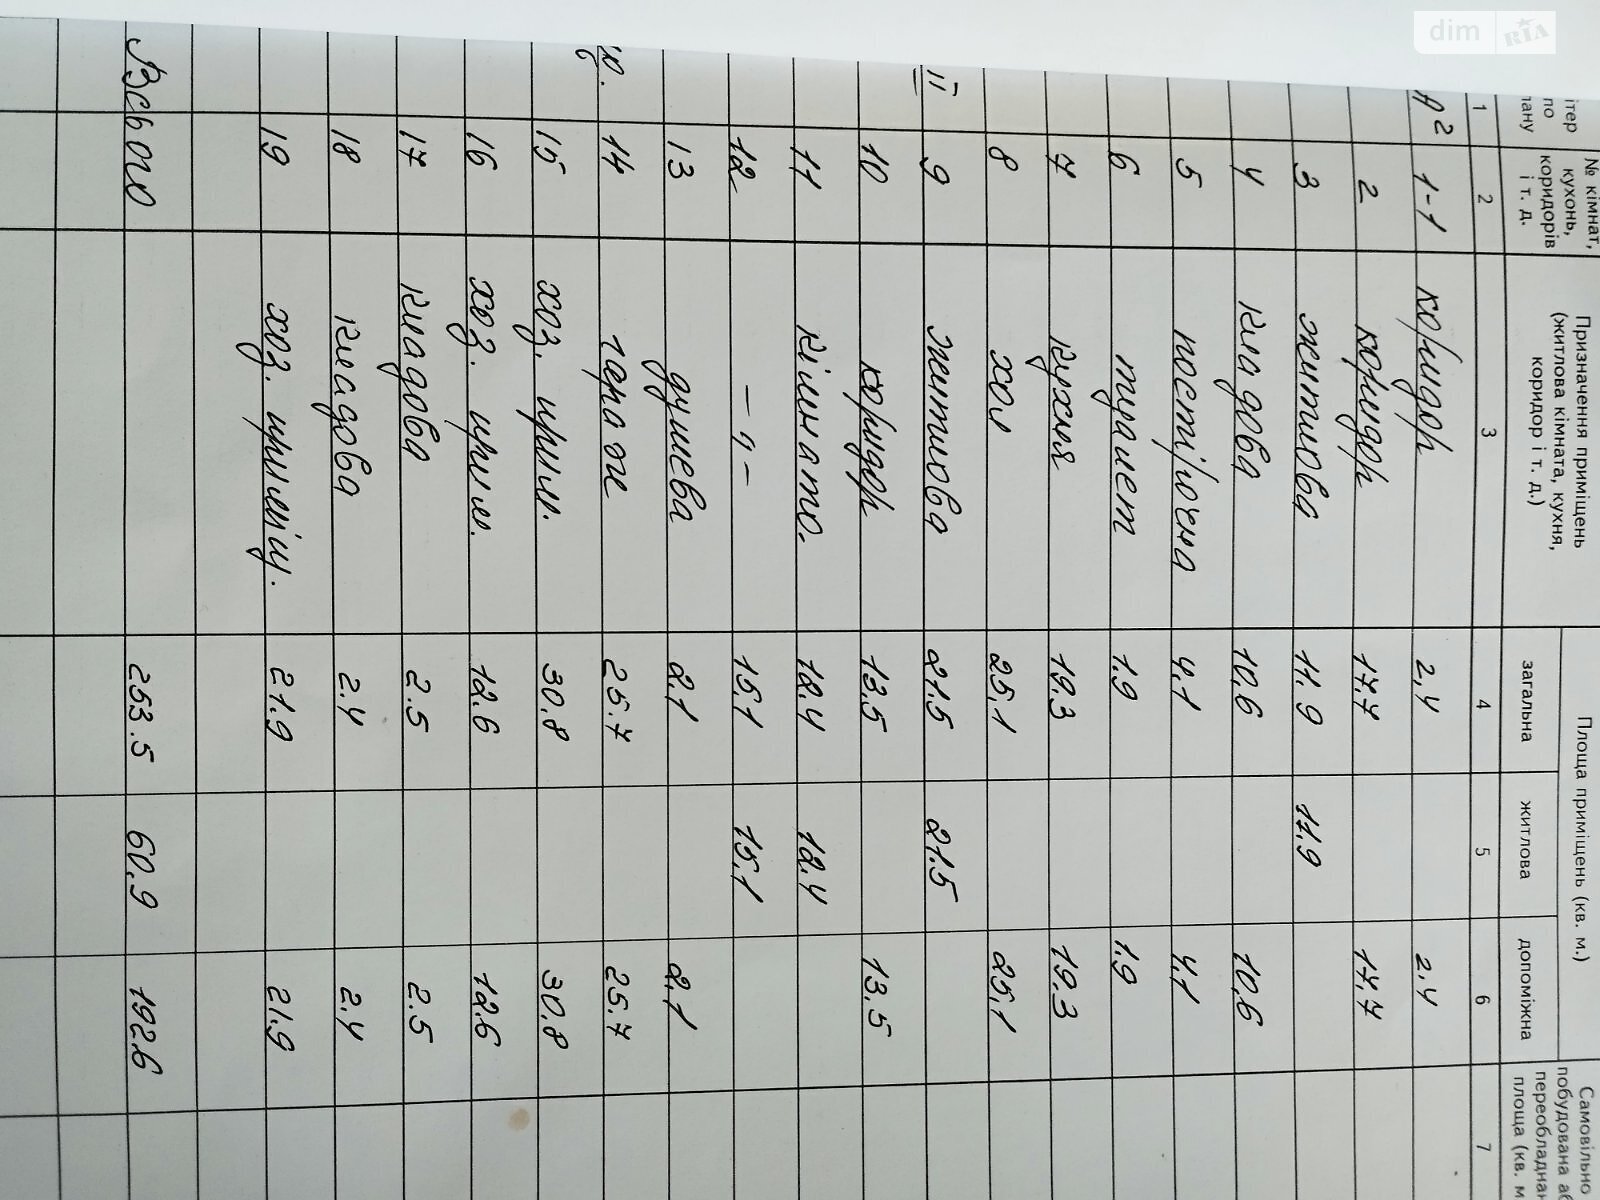 dim RIA
ітер по лану
№ кімнат, кухонь, коридорів і т. д.
Призначення приміщень (житлова кімната, кухня, коридор і т. д.)
Площа приміщень (кв. м.)
загальна житлова допоміжна
Самовільно побудована аб переобладнан площа (кв. м
1 2 3 4 5 6 7
А² 1-1 коридор 2,4 2,4
2 коридор 17,7 17,7
3 житлова 11.9 11,9
4 кладова 10,6 10,6
5 постірочна 4,1 4,1
6 туалет 1.9 1.9
7 кухня 19.3 19.3
8 хол 25,1 25,1
II 9 житлова 21.5 21.5
10 коридор 13.5 13.5
11 кімнато. 12,4 12,4
12 – „ – 15,1 15,1
13 душева 2,1 2,1
14 гараж 25.7 25.7
15 хоз. прим. 30.8 30.8
16 хоз. прим. 12.6 12.6
17 кладова 2.5 2.5
18 кладова 2.4 2.4
19 хоз. приміщ. 21.9 21.9
Всього 253.5 60.9 192.6